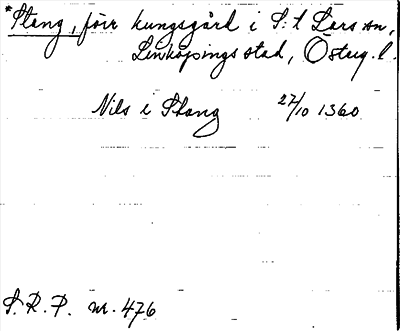 *Stang, förr kungsgård i S:t Lars sn,
Linköpings stad, Österg. l.
Nils i Stang 27/10 1360
S. R. P. nr. 476